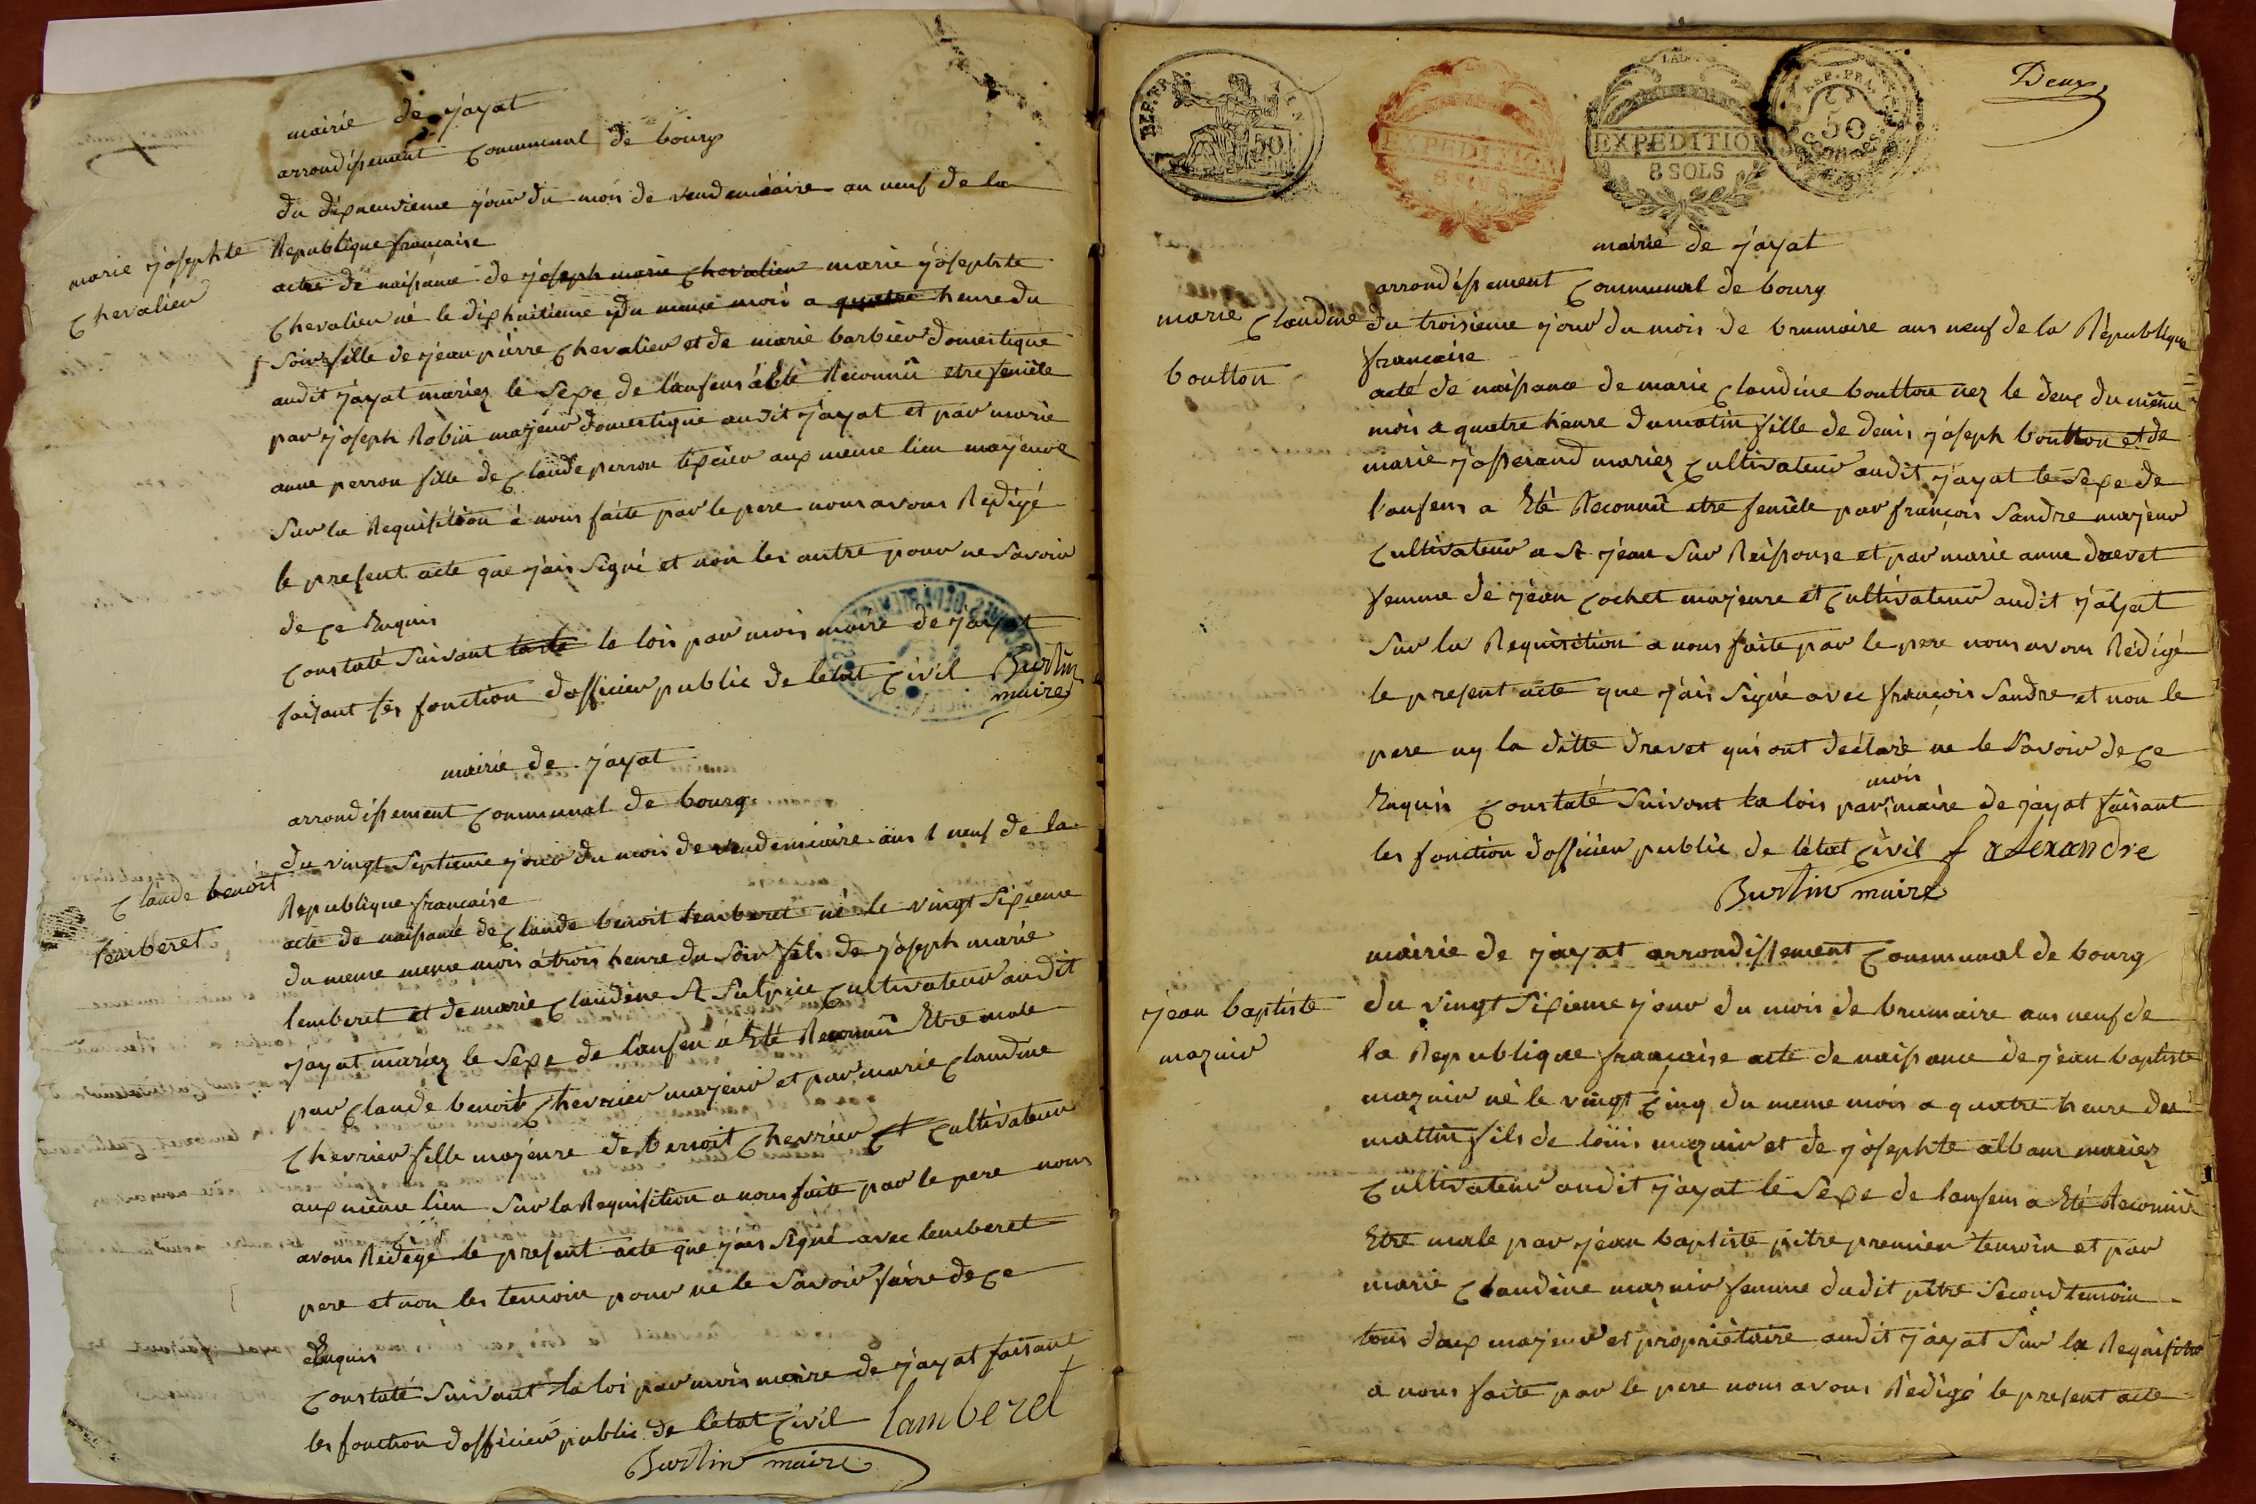 mairie de jayat
arrondissement Communal de bourg
du dixneuvieme jour du mois de vendemiaire an neuf de la
Republique francaise
marie josephte
Chevalier
acte de naissance de joseph marie Chevalier marie josephte
Chevalier né le dixhuitieme du meme mois a quatre heure du
soir fille de jean pierre Chevalier et de marie barbier domestique
audit jayat mariez le sexe de l'ansens a été Reconnu etre femêle
par joseph Robin majeur domestique audit jayat et par marie
anne perron fille de Claude perron texcier aux meme lieu majeure
Sur la Requisition à nous faite par le pere nous avons Redigé
le present acte que jais signé et non les autre pour ne savoir
de ce Enquis
Constaté suivant la loi par mois maire de jayat
faisant les fonction d'officier public de letat Civil Burtin
maire
mairie de jayat
arrondissement Communal de bourg
du vingt septieme jour du mois de vendemiaire ans neuf de la
Republique francaise
Claude benoit
lemberet
acte de naissance de Claude benoit lemberet né le vingt sixieme
du meme meme mois à trois heure du soir fils de joseph marie
lemberet et de marie Claudine St Sulpice Cultivateur audit
jayat mariez le sexe de l'ansen a Eté Reconnu Etre male
par Claude benoit Chevrier majeur et par marie Claudine
Chevrier fille majeure de benoit Chevrier Cultivateur
aux meme lieu Sur la Requisition a nous faite par le pere nous
avons Redigé le present acte que jais signé avec lemberet
pere et non les temoin pour ne le Savoir faire de ce
Enquis
Constaté suivant la loi par mois maire de jayat faisant
les fonction d'officier public de letat Civil lamberet
Burtin maire
REP. FRA.
50
EXPEDITION
8 SOLS
EXPEDITION
8 SOLS
REP. FRA.
50
Deux
mairie de jayat
arrondissement Communal de bourg
marie Claudine
boutton
du troisieme jour du mois de brumaire ans neuf de la Republique
francaise
acte de naissance de marie Claudine boutton nez le deux du meme
mois a quatre heure du matin fille de denis joseph boutton et de
marie josserand mariez Cultivateur audit jayat le sexe de
l'ansens a Eté Reconnu etre femêle par françois Sandre majeur
Cultivateur a St jean Sur Reissouse et par marie anne drevet
femme de jean Cochet majeure et Cultivateur audit jayat
Sur la Requisition a nous faite par le pere nous avons Redigé
le present acte que jais signé avec françois Sandre et non le
pere ny la ditte drevet qui ont declaré ne le Savoir de ce
Enquis Constaté Suivant la lois par mois maire de jayat faisant
les fonction d'officier public de l'etat Civil f alexandre
Burtin maire
mairie de jayat arrondissement Communal de bourg
jean baptiste
mazuir
du vingt sixieme jour du mois de brumaire ans neuf de
la Republique francaise acte de naissance de jean baptiste
mazuir né le vingt Cinq du meme mois a quatre heure du
mattin fils de loüis mazuir et de josephte alban mariez
Cultivateur audit jayat le sexe de lansens a Eté Reconnu
Etre male par jean baptiste pitre premier temoin et par
marie Claudine mazuir femme dudit pitre Second temoin
tous deux majeur et proprietaire audit jayat Sur la Requisition
a nous faite par le pere nous avons Redigé le present acte